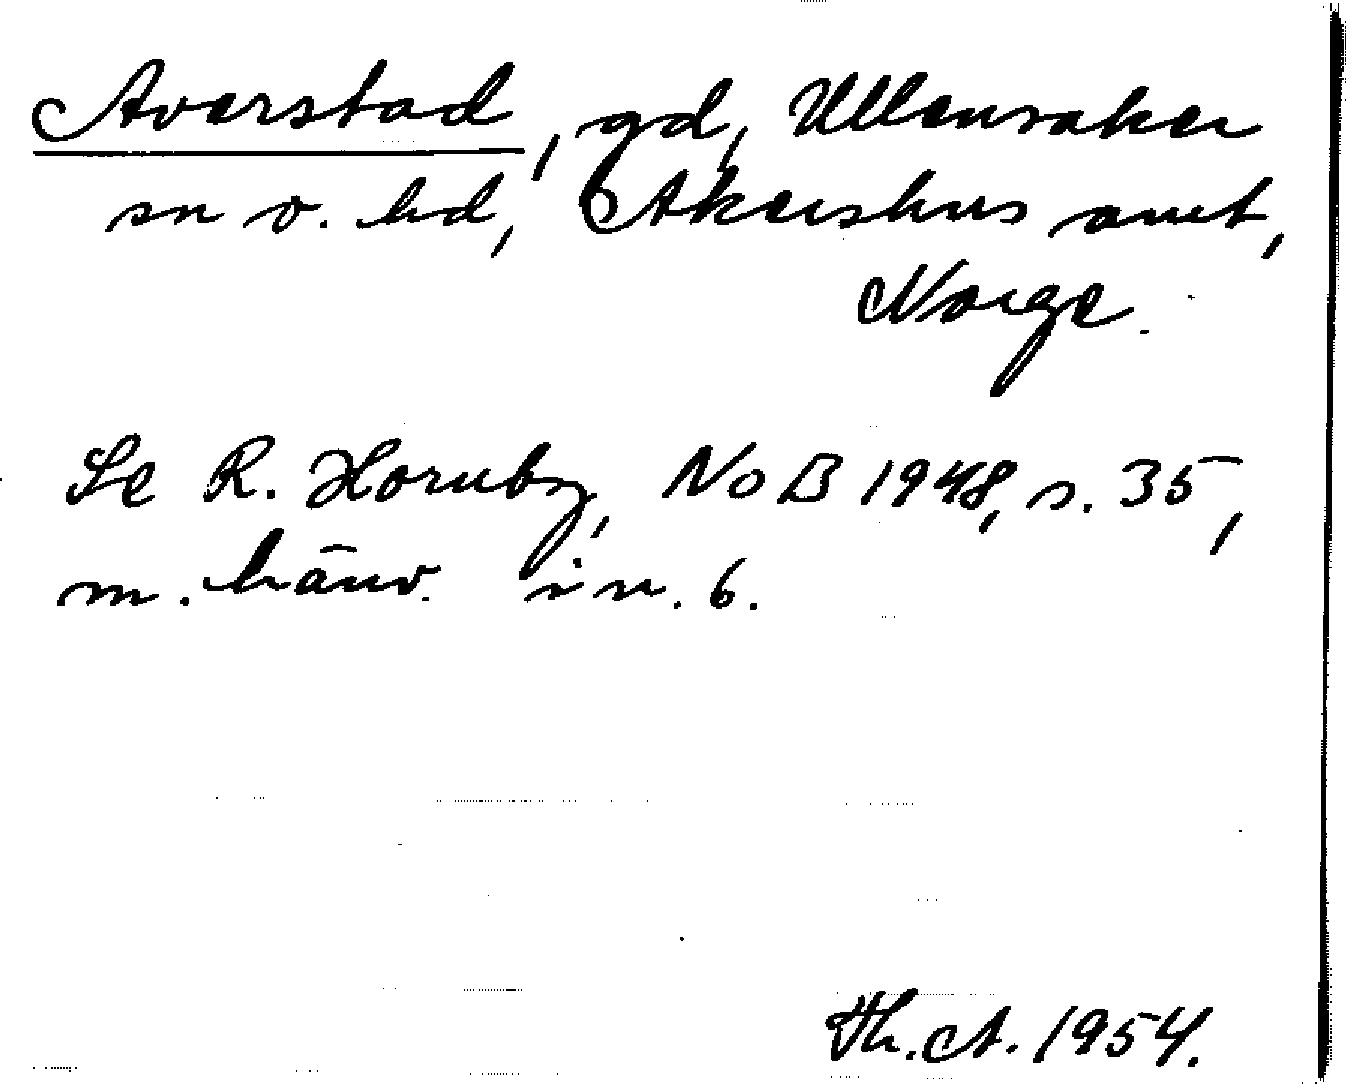 Averstad, gd, Ullensaker
sn o. hd, Akershus amt,
Norge.
Se R. Hornby, NoB 1948, s. 35,
m. hänv. i n. 6.
Th. A. 1954.